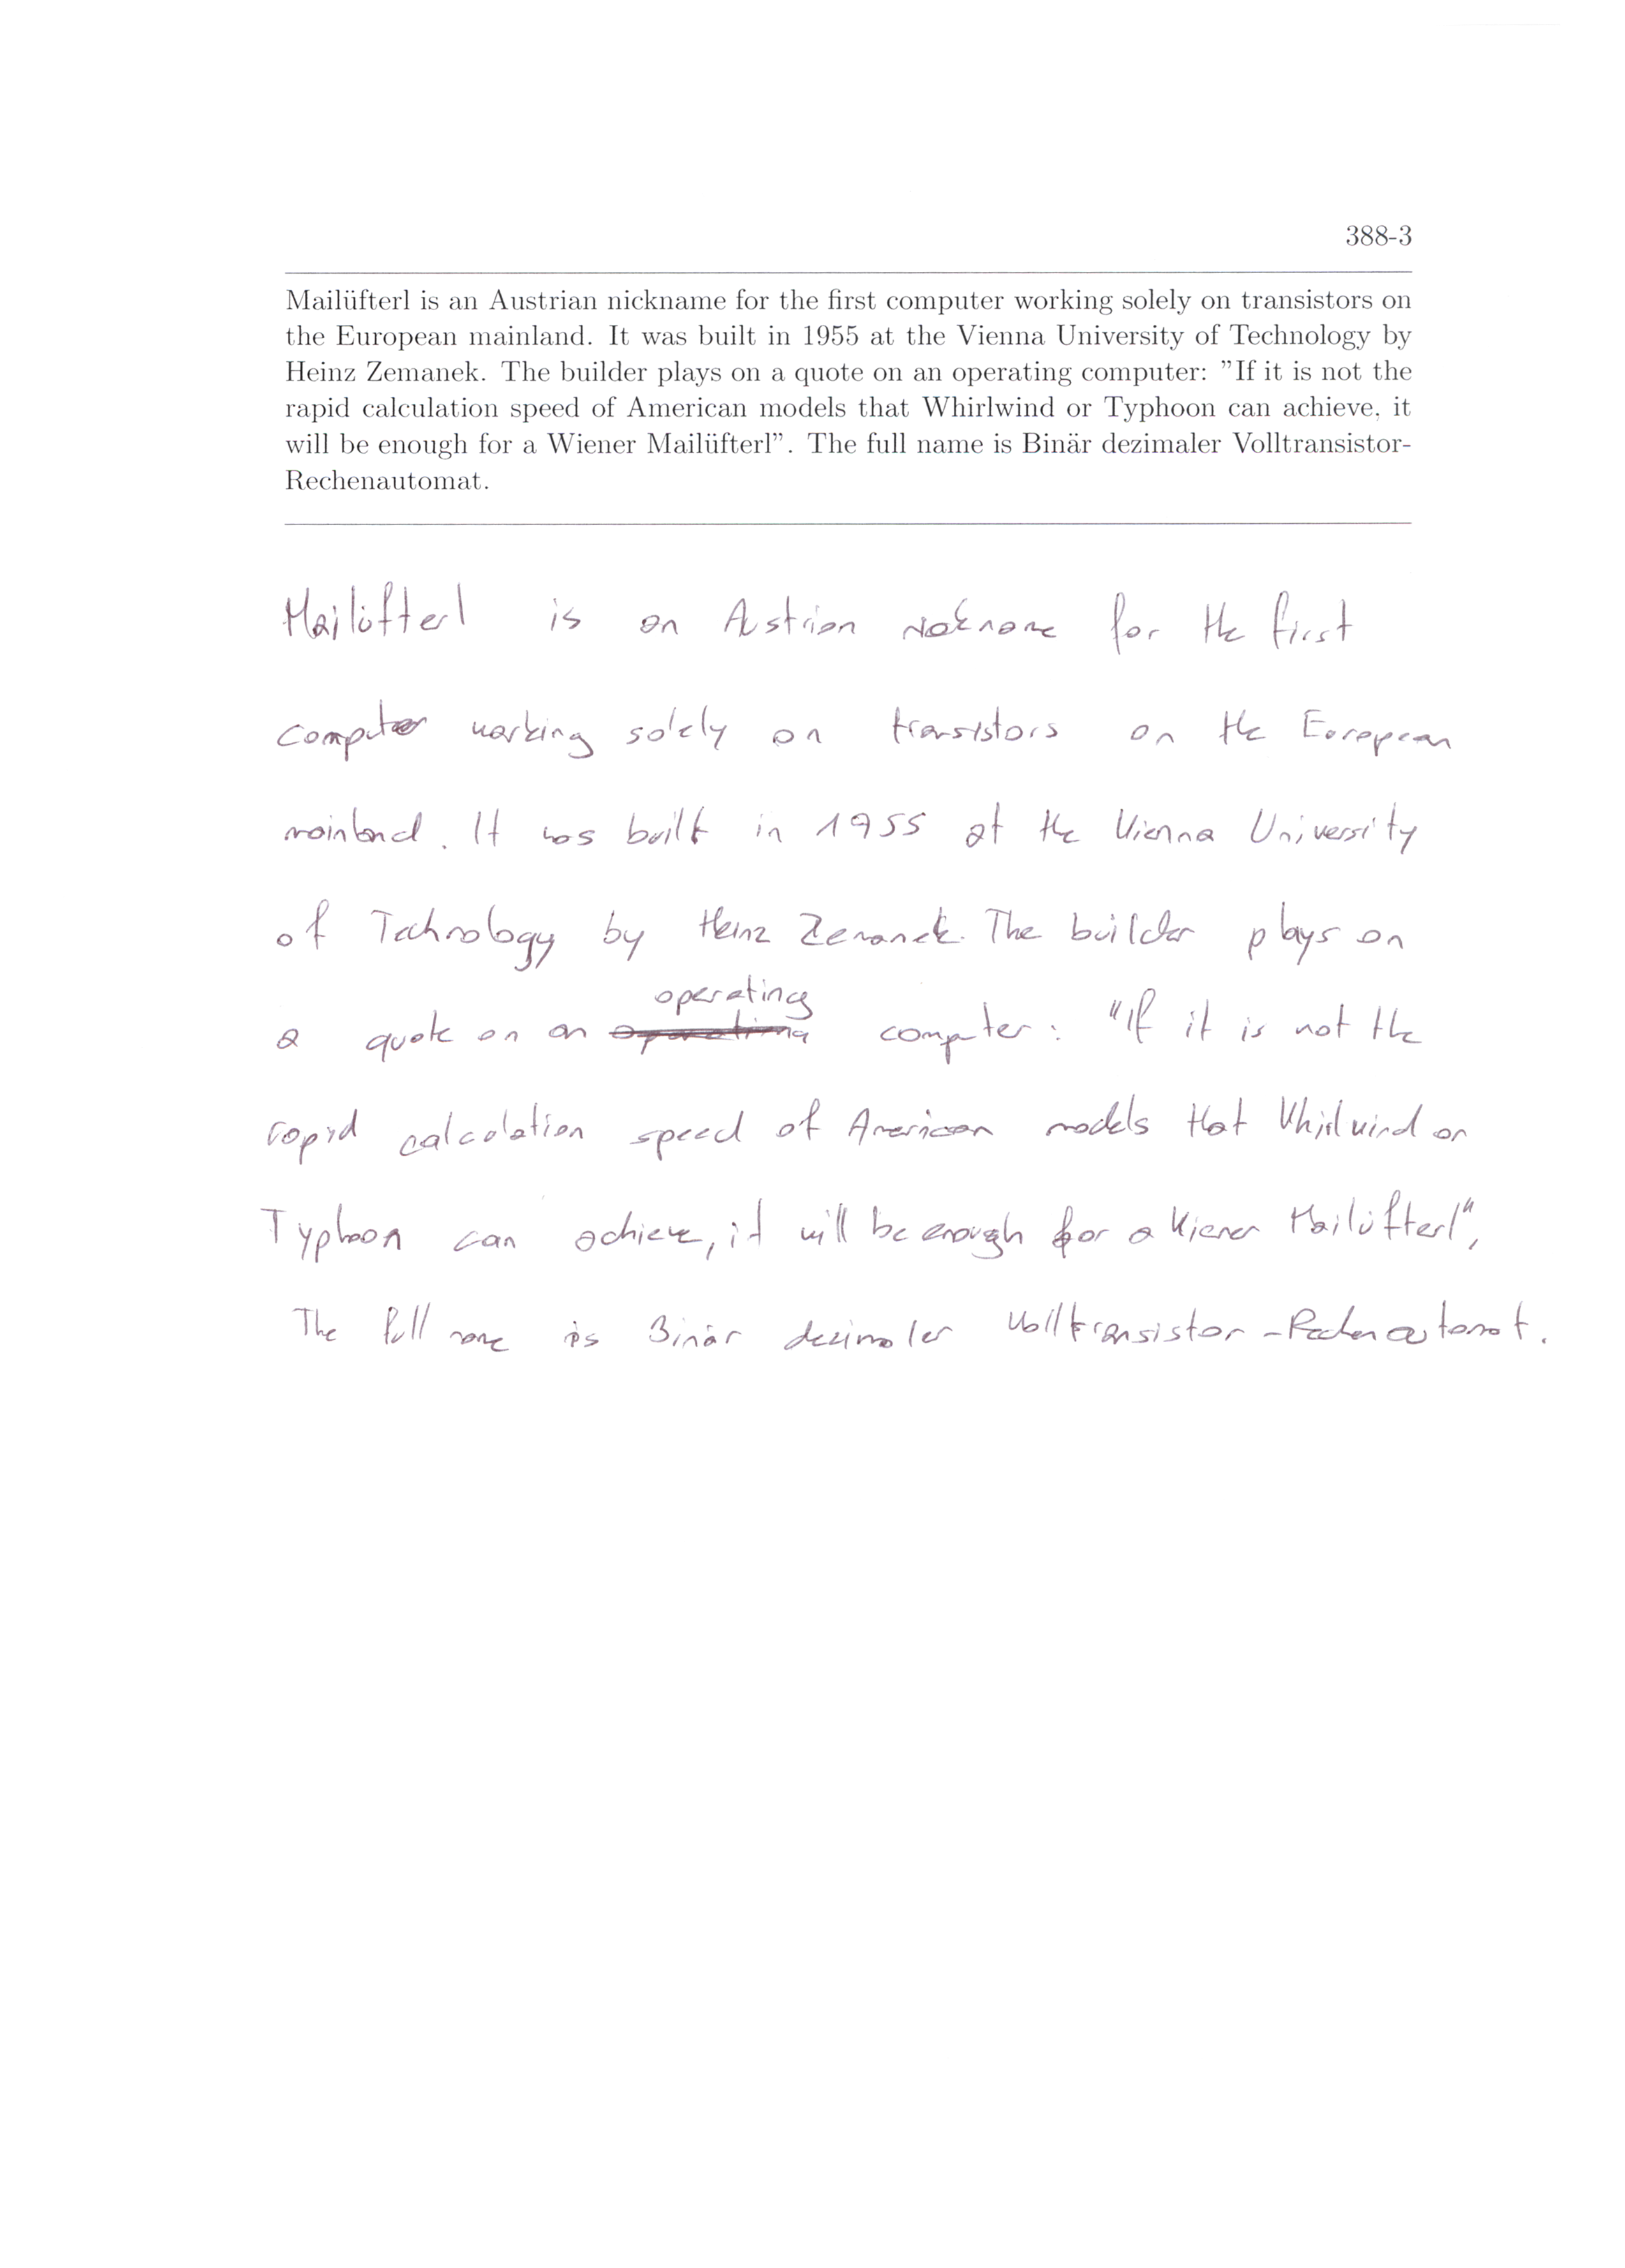 388-3
Mailüfterl is an Austrian nickname for the first computer working solely on transistors on
the European mainland. It was built in 1955 at the Vienna University of Technology by
Heinz Zemanek. The builder plays on a quote on an operating computer: ”If it is not the
rapid calculation speed of American models that Whirlwind or Typhoon can achieve, it
will be enough for a Wiener Mailüfterl”. The full name is Binär dezimaler Volltransistor-
Rechenautomat.
Mailüfterl is an Austrian nickname for the first
computer working solely on transistors on the European
mainland. It was built in 1955 at the Vienna University
of Technology by Heinz Zemanek. The builder plays on
operating
a quote on an operating computer: "If it is not the
rapid calculation speed of American models that Whirlwind or
Typhoon can achieve, it will be enough for a Wiener Mailüfterl",
The full name is Binär dezimaler Volltransistor-Rechenautomat.